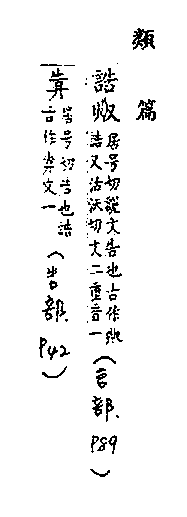 類篇
誥
居号切說文告也古作
誥又沽沃切文二重音一
(言部、P89)
居号切告也誥
古作 文一
(告部、P42)